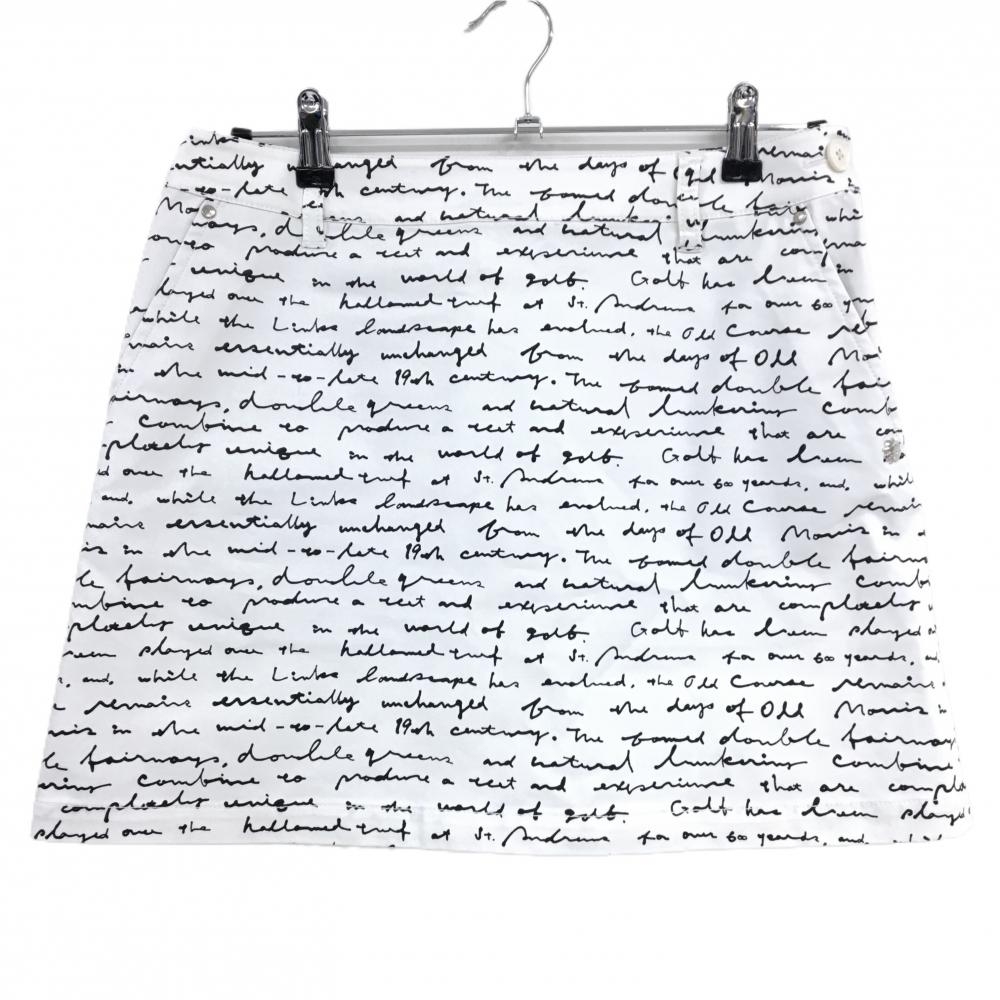 ntially unchanged from the days of Old Morris
-to-late century. The famed double fair
ways, double greens and natural bunkering
produce a test and experience that are com
unique in the world of golf. Golf has been
layed over the hallowed turf at St. Andrews for over 600 ye
while the Links landscape has evolved, the Old Course re
mains essentially unchanged from the days of Old Mo
in the mid-to-late 19th century. The famed double fair
airways, double greens and natural bunkering comb
combine to produce a test and experience that are com
pletely unique in the world of golf. Golf has been
d over the hallowed turf at St. Andrews for over 600 years, and, while
and, while the Links landscape has evolved, the Old Course remain
mains essentially unchanged from the days of Old Morris in
is in the mid-to-late 19th century. The famed double fairw
le fairways, double greens and natural bunkering combi
mbine to produce a test and experience that are completely
pletely unique in the world of golf. Golf has been played
een played over the hallowed turf at St. Andrews for over 600 years, and
, and, while the Links landscape has evolved, the Old Course remains
remains essentially unchanged from the days of Old Morris
ris in the mid-to-late 19th century. The famed double fairway
le fairways, double greens and natural bunkering combine
ering combine to produce a test and experience that are comple
completely unique in the world of golf. Golf has been played
played over the hallowed turf at St. Andrews for over 600 years, and